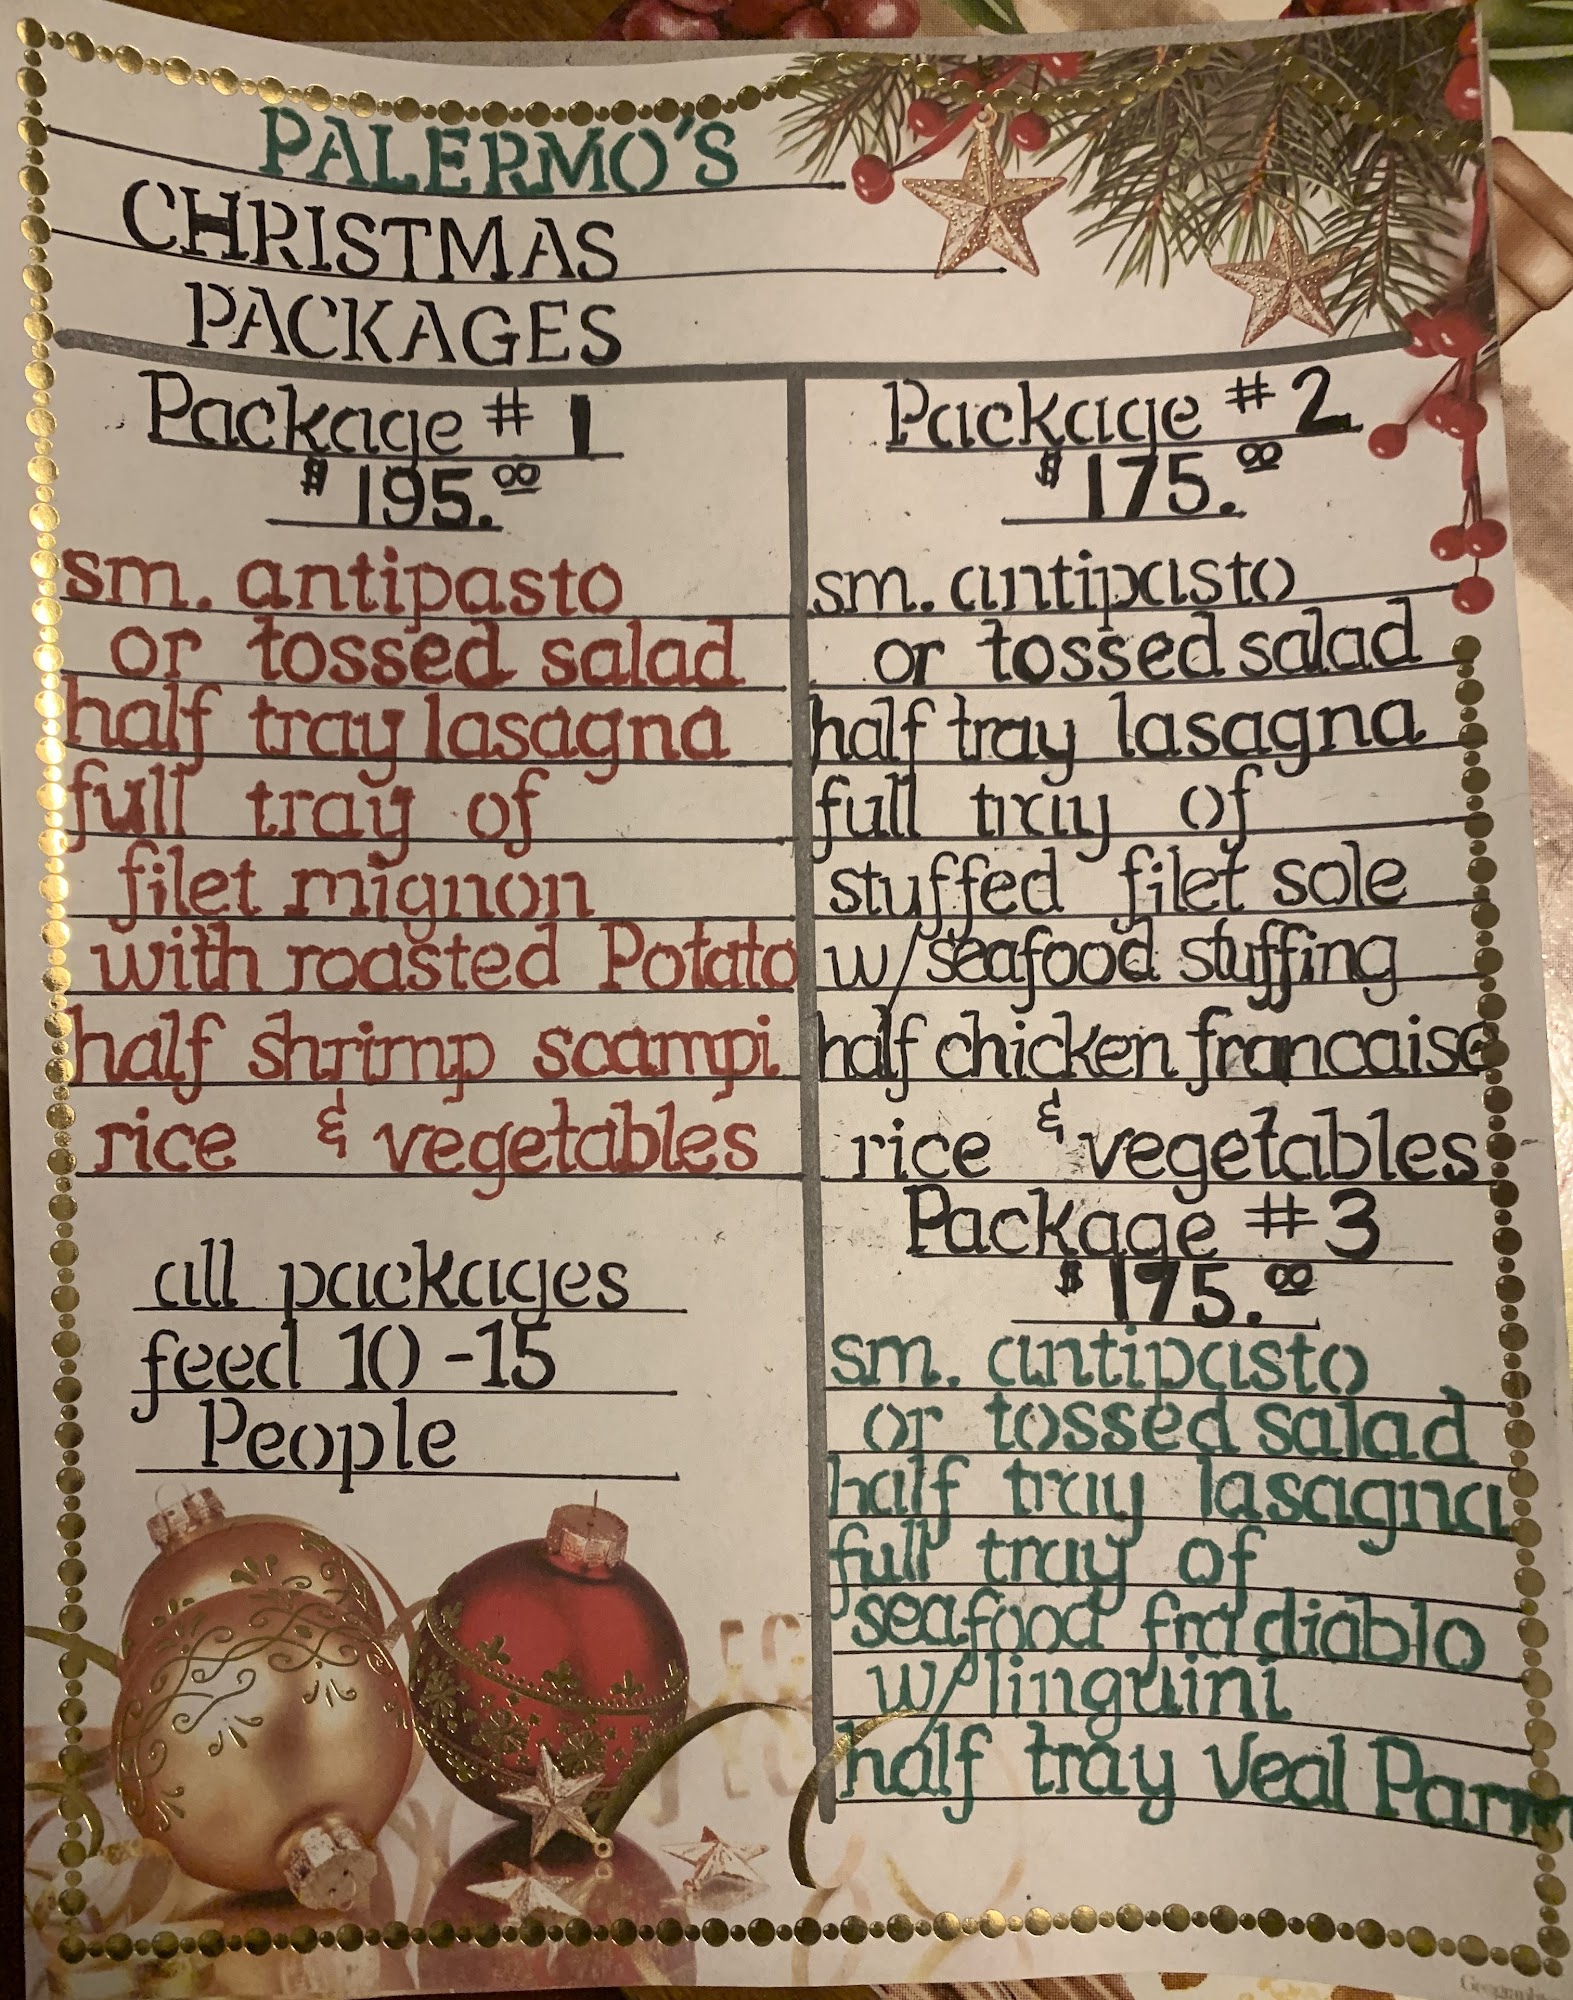 PALERMO'S
CHRISTMAS
PACKAGES
Package # 1
$195.00
sm. antipasto
or tossed salad
half tray lasagna
full tray of
filet mignon
with roasted Potato
half shrimp scampi
rice & vegetables
all packages
feed 10-15
People
Package #2
$175.00
sm. antipasto
or tossed salad
half tray lasagna
full tray of
stuffed filet sole
w/seafood stuffing
half chicken francaise
rice & vegetables
Package #3
$175.00
sm. antipasto
or tossed salad
half tray lasagna
full tray of
seafood fra diablo
w/linguini
half tray Veal Parm